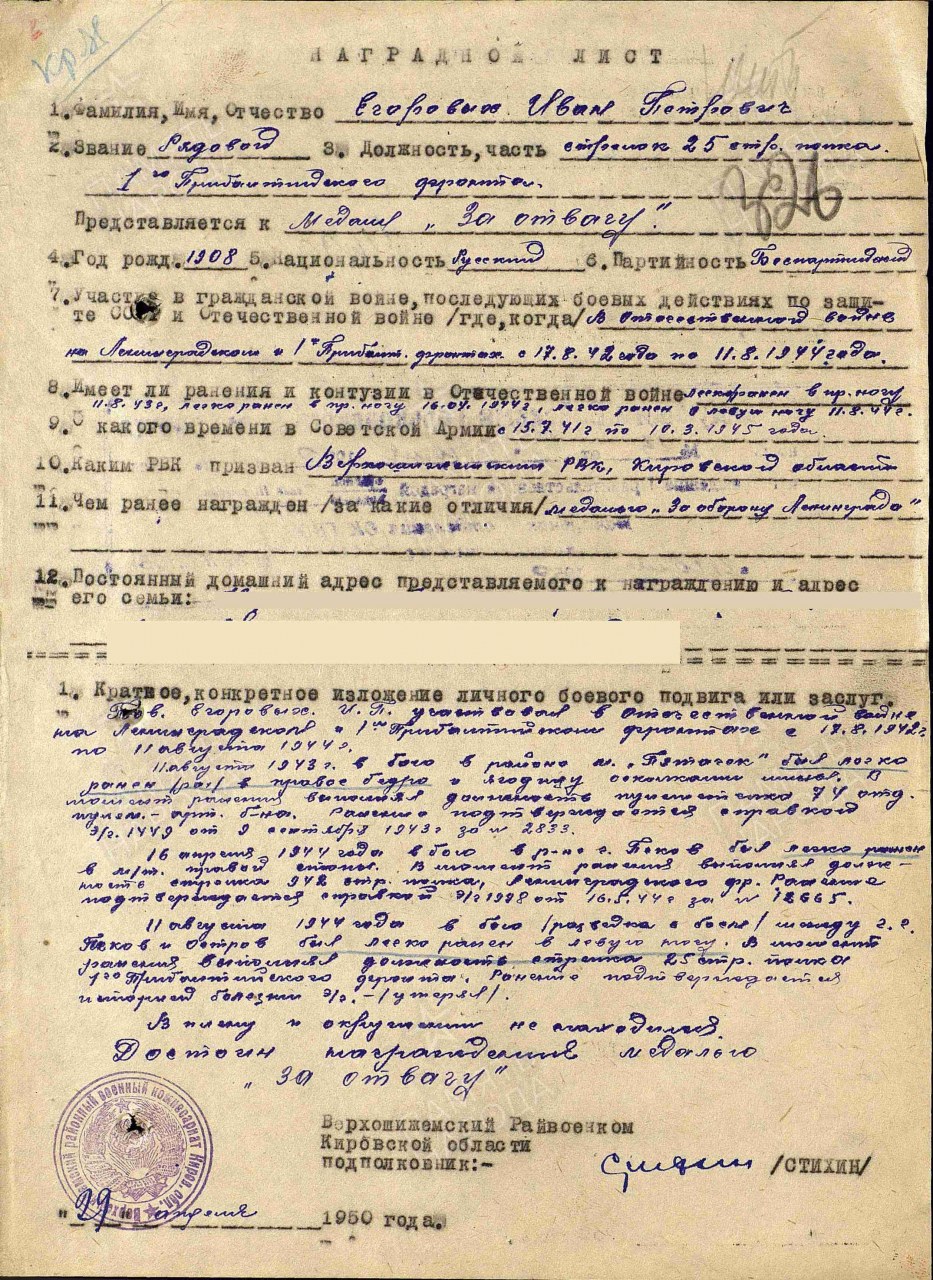 НАГРАДНОЙ ЛИСТ
1. Фамилия, Имя, Отчество Егоровых Иван Петрович
2. Звание Рядовой 3. Должность, часть стрелок 25 стр. полка.
1го Прибалтийского фронта.
Представляется к медали „За отвагу".
326
4. Год рожд. 1908 5. Национальность Русский 6. Партийность Беспартийный
7. Участие в гражданской войне, последующих боевых действиях по защи-
те СССР и Отечественной войне /где, когда/ В Отечественной войне
на Ленинградском и 1м Прибалт. фронтах с 17.8.42 года по 11.8.1944 года.
8. Имеет ли ранения и контузии в Отечественной войне легко ранен в пр. ногу
11.8.43г, легко ранен в пр. ногу 16.04.1944г, легко ранен в левую ногу 11.8.44г.
9. С какого времени в Советской Армии с 15.7.41г по 10.3.1945 года.
10. Каким РВК призван Верхошижемским РВК, Кировской области
11. Чем ранее награжден /за какие отличия/ медалью „За оборону Ленинграда"
12. Постоянный домашний адрес представляемого к награждению и адрес
его семьи:
1. Краткое, конкретное изложение личного боевого подвига или заслуг.
Тов. Егоровых И.П. участвовал в Отечественной войне
на Ленинградском и 1ом Прибалтийском фронтах с 17.8.1942г.
по 11 августа 1944г.
11 августа 1943г. в бою в районе м. „Пятачек" был легко
ранен в правое бедро и ягодицу осколками мины. В
момент ранения выполнял должность пулеметчика 74 отд.
пулем.-арт. б-на. Ранение подтверждается справкой
э/г. 1449 от 9 сентября 1943г за № 2833.
16 апреля 1944 года в бою в р-не г. Псков был легко ранен
в правой стопы. В момент ранения выполнял долж-
ность стрелка 942 стр. полка, Ленинградского фр. Ранение
подтверждается справкой э/г 1998 от 16.5.44г за № 12665.
11 августа 1944 года в бою /разведка с боем/ между г.г.
Псков и Остров был легко ранен в левую ногу. В момент
ранения выполнял должность стрелка 25 стр. полка
1го Прибалтийского фронта. Ранение подтверждается
историей болезни э/г. - /утерял/.
В плену и окружении не находился.
Достоин награждения медалью
„За отвагу"
Верхошижемский Райвоенком
Кировской области
подполковник:- /СТИХИН/
"29" апреля 1950 года.